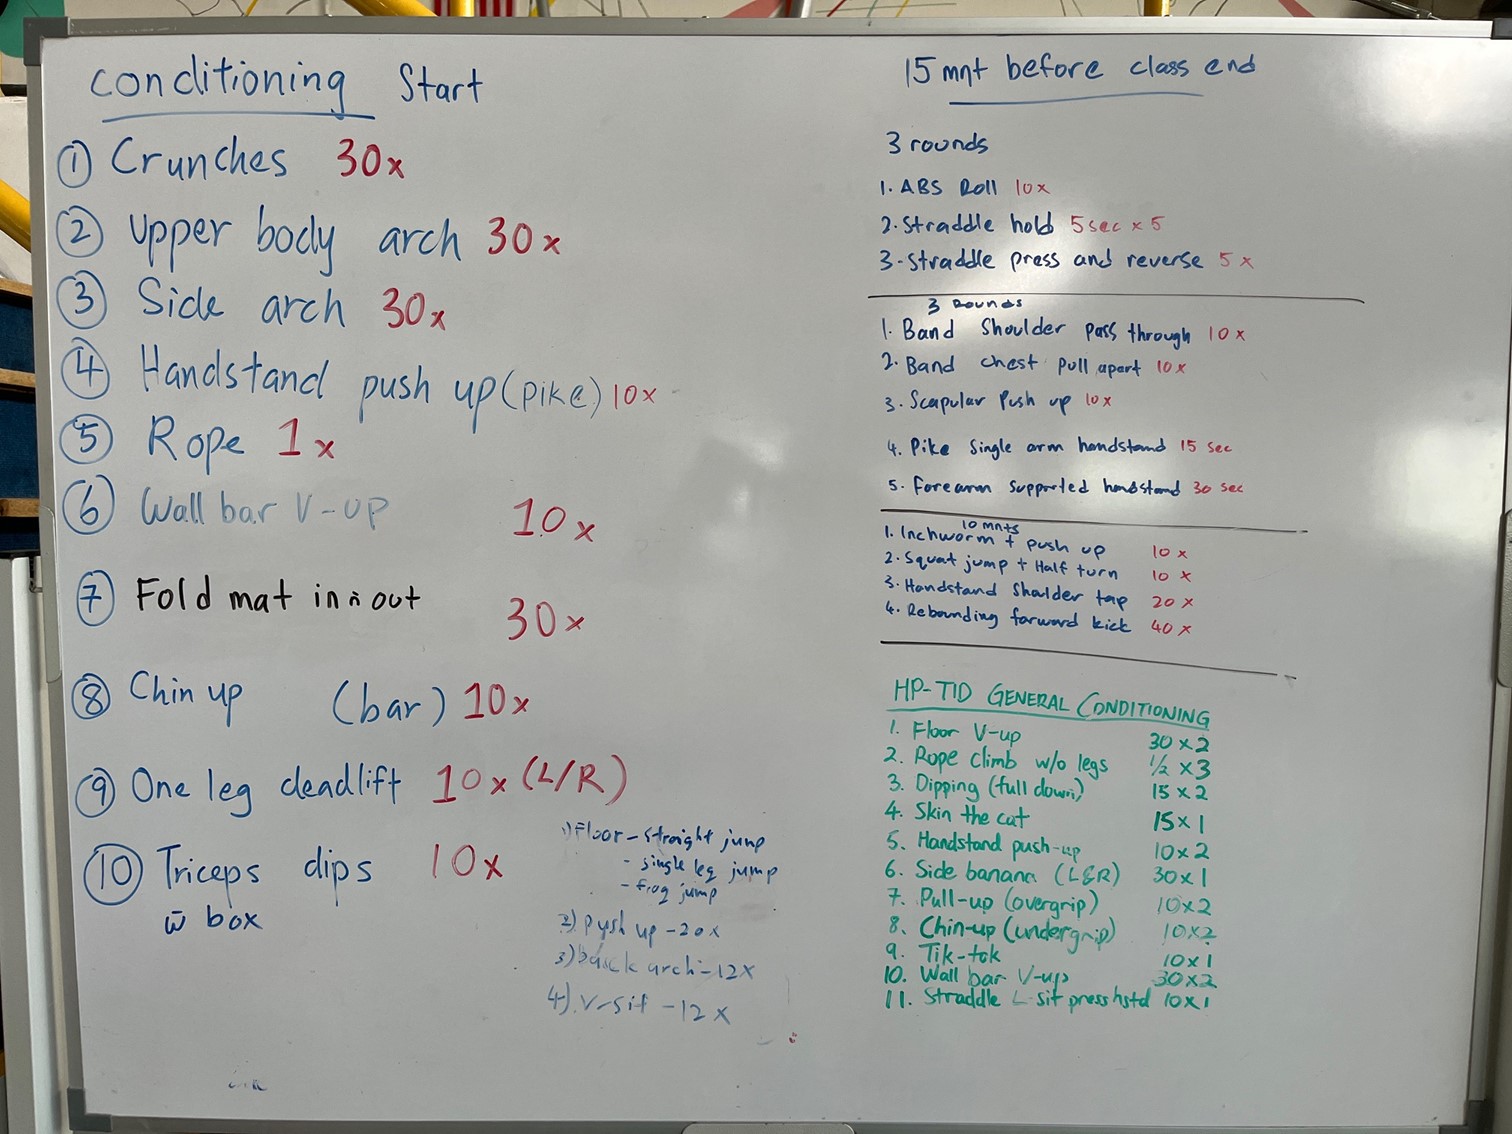 Conditioning Start
① Crunches 30x
② Upper body arch 30x
③ Side arch 30x
④ Handstand push up (pike) 10x
⑤ Rope 1x
⑥ Wall bar V-up 10x
⑦ Fold mat in n out 30x
⑧ Chin up (bar) 10x
⑨ One leg deadlift 10x (L/R)
⑩ Triceps dips 10x
w̄ box
1) Floor - straight jump
- single leg jump
- frog jump
2) push up - 20x
3) back arch - 12x
4) V-sit - 12x
15 mnt before class end
3 rounds
1. ABS Roll 10x
2. Straddle hold 5sec x 5
3. Straddle press and reverse 5x
3 Rounds
1. Band Shoulder pass through 10x
2. Band chest pull apart 10x
3. Scapular Push up 10x
4. Pike Single arm handstand 15 sec
5. Forearm supported handstand 30 sec
10 mnts
1. Inchworm + push up 10x
2. Squat jump + Half turn 10x
3. Handstand Shoulder tap 20x
4. Rebounding forward kick 40x
HP-TID GENERAL CONDITIONING
1. Floor V-up 30x2
2. Rope climb w/o legs ½ x3
3. Dipping (full down) 15x2
4. Skin the cat 15x1
5. Handstand push-up 10x2
6. Side banana (L&R) 30x1
7. Pull-up (overgrip) 10x2
8. Chin-up (undergrip) 10x2
9. Tik-tok 10x1
10. Wall bar V-up 30x2
11. Straddle L-sit press hstd 10x1